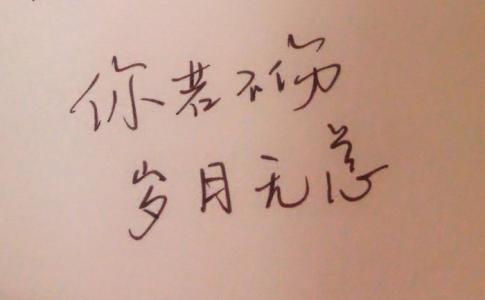 你若不伤
岁月无恙